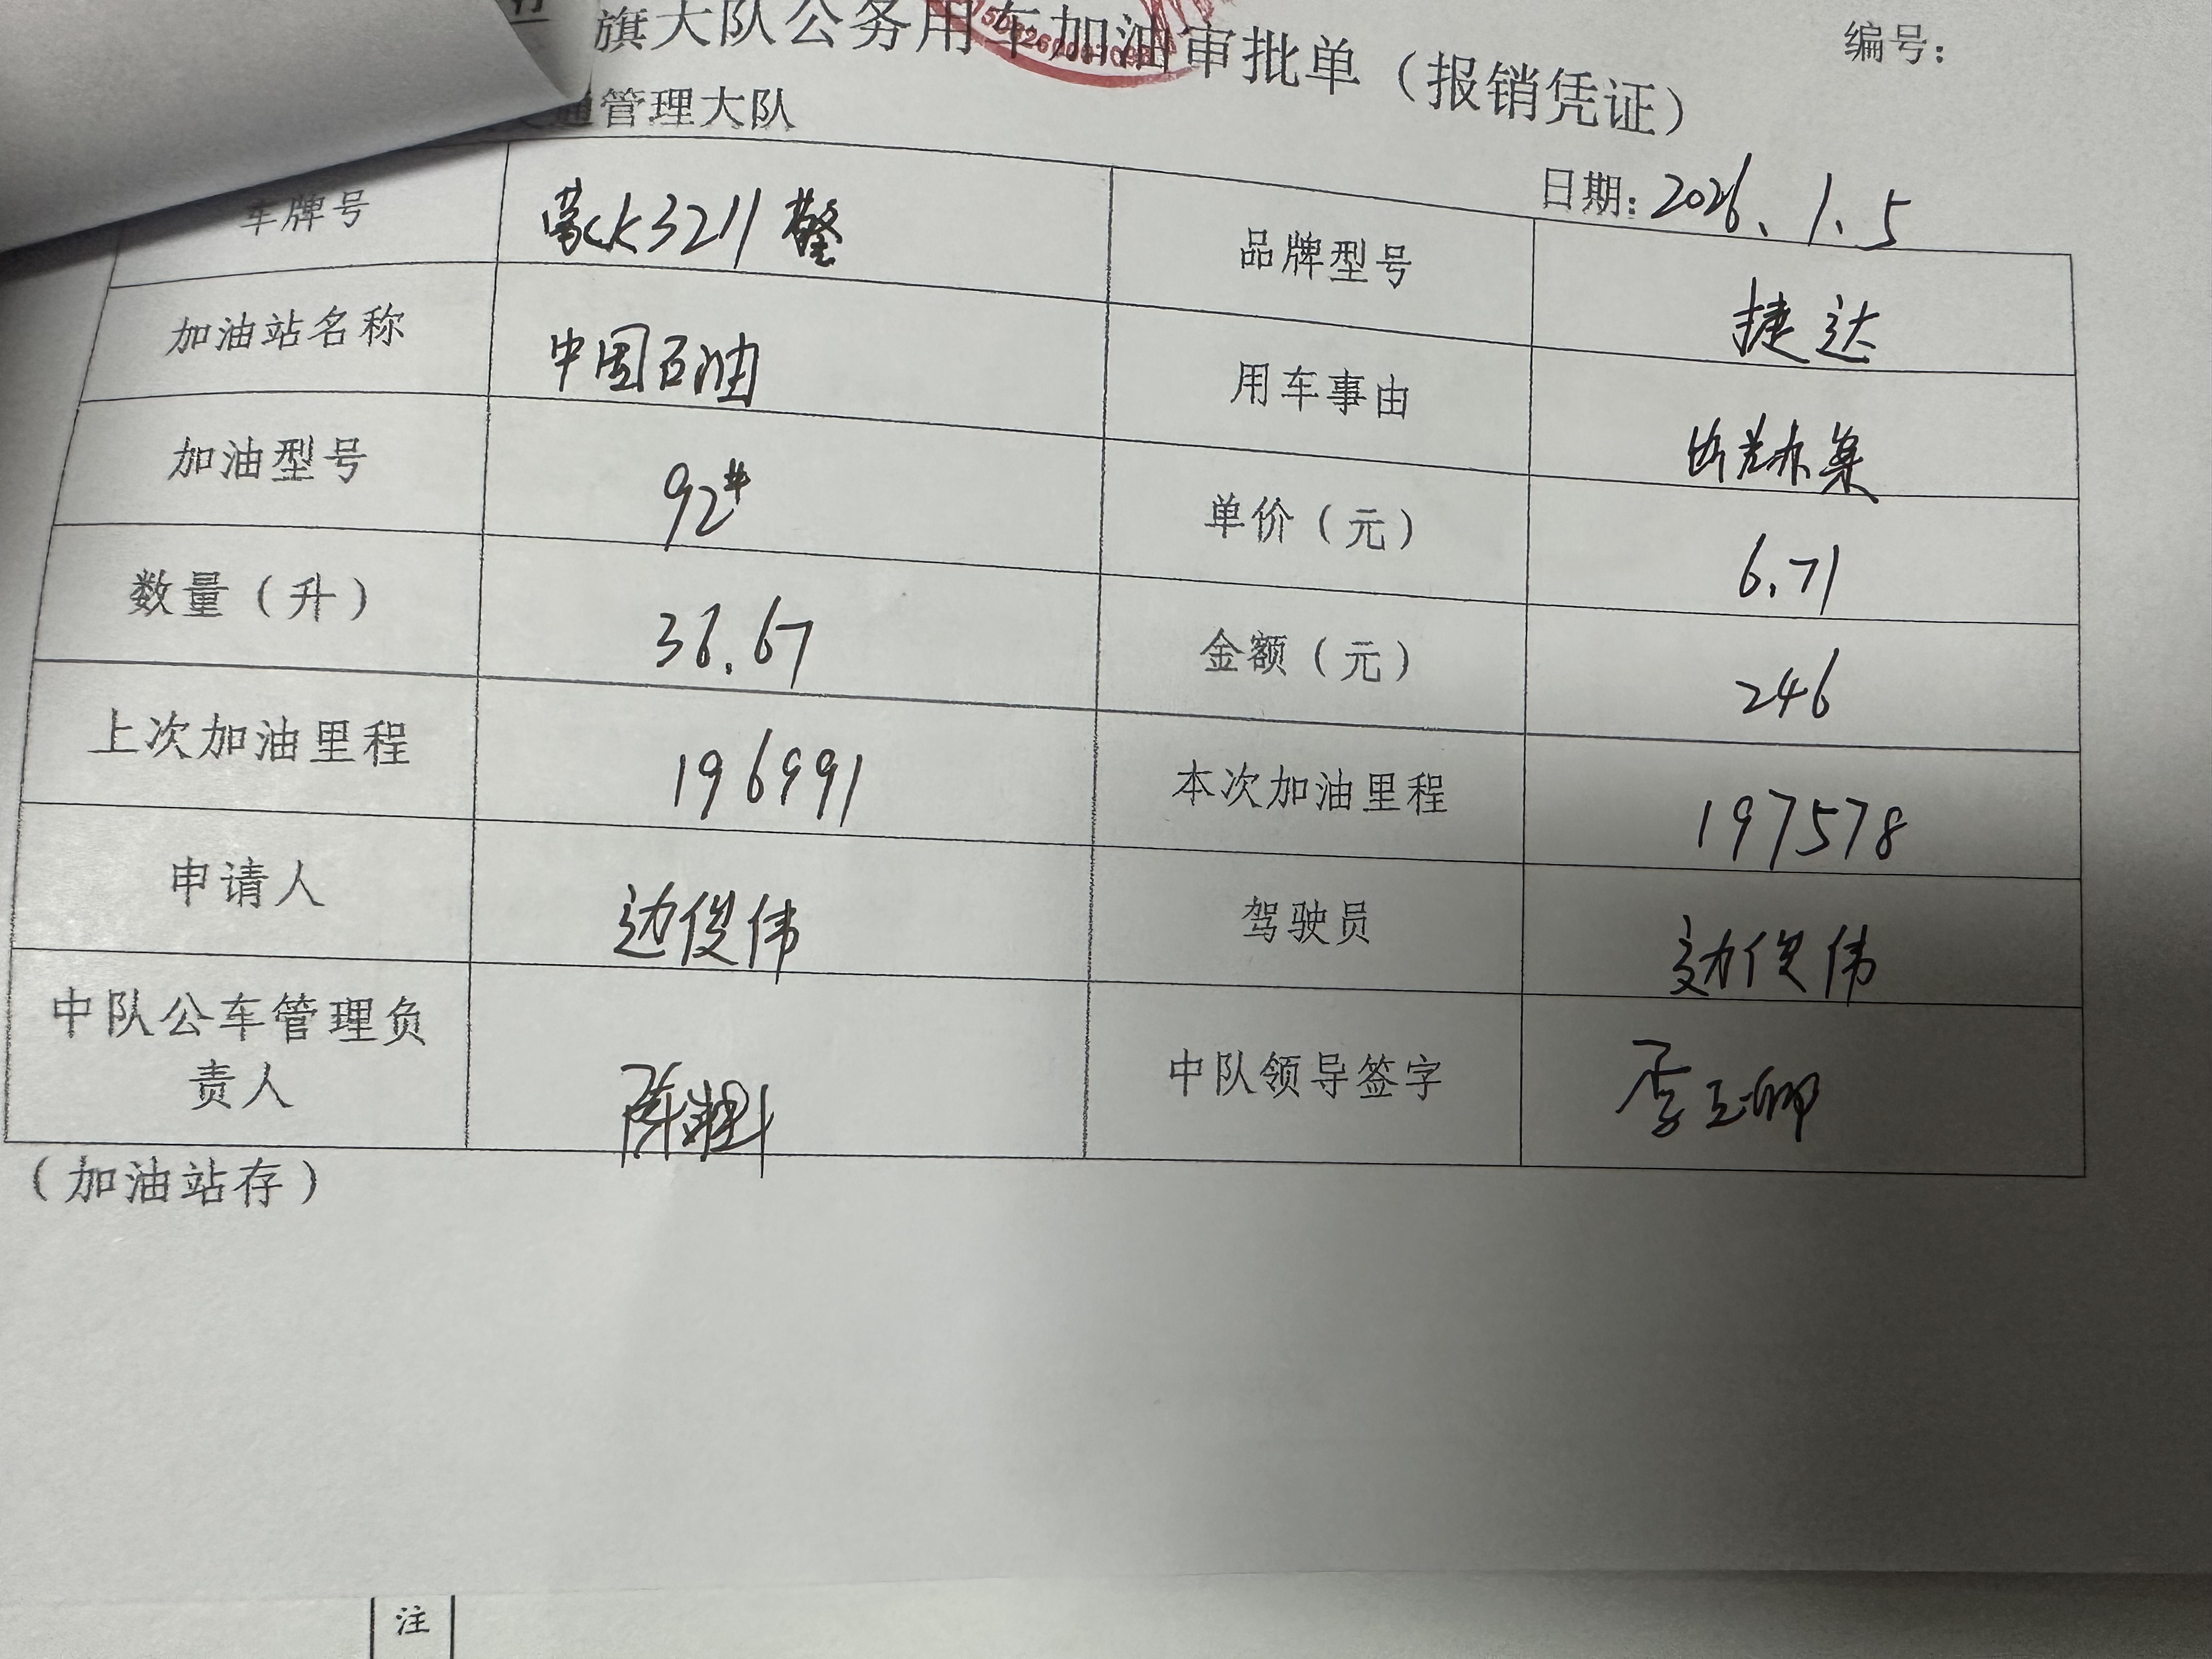 旗大队公务用车加油审批单（报销凭证）
编号：
通管理大队
日期：2026、1、5
车牌号 蒙CK3211警 品牌型号 捷达
加油站名称 中国石油 用车事由
加油型号 92# 单价（元） 6.71
数量（升） 36.67 金额（元） 246
上次加油里程 196991 本次加油里程 197578
申请人 边俊伟 驾驶员 边俊伟
中队公车管理负 中队领导签字
责人
（加油站存）
注